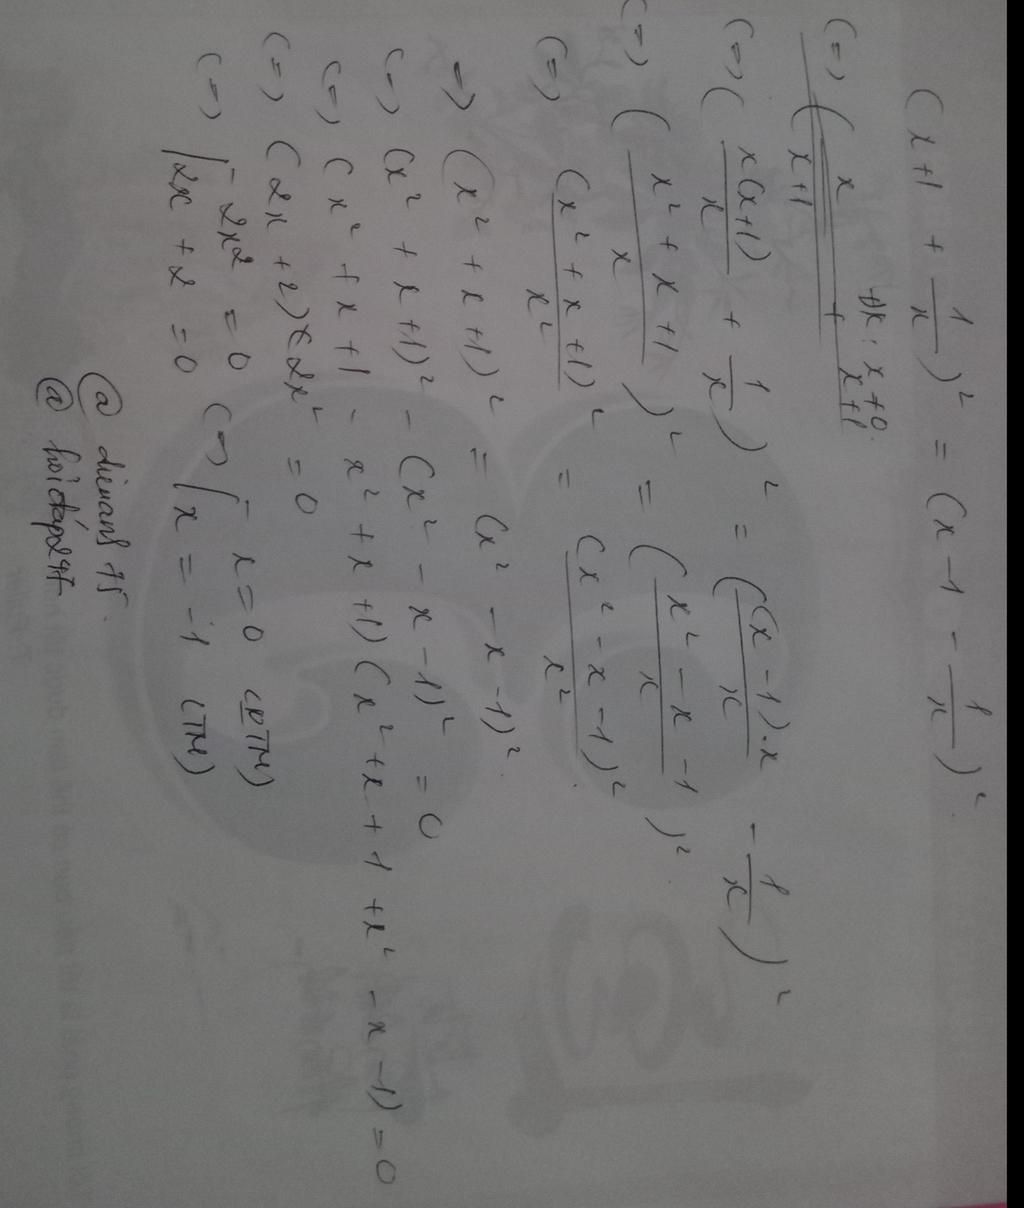 (x+1 + 1/x)² = (x-1 - 1/x)²
ĐK: x≠0.
(=) (x(x+1)/x + 1/x)² = ((x-1).x/x - 1/x)²
(=) (x²+x+1/x)² = (x²-x-1/x)²
(=) (x²+x+1)²/x² = (x²-x-1)²/x²
=) (x²+x+1)² = (x²-x-1)²
(=) (x²+x+1)² - (x²-x-1)² = 0
(=) (x²+x+1 - x²+x+1)(x²+x+1+x²-x-1) = 0
(=) (2x+2) 2x² = 0
(=) [2x² = 0 (=) [x=0 (KTM)
2x+2 = 0 x = -1 (TM)
@
@ hoidap247